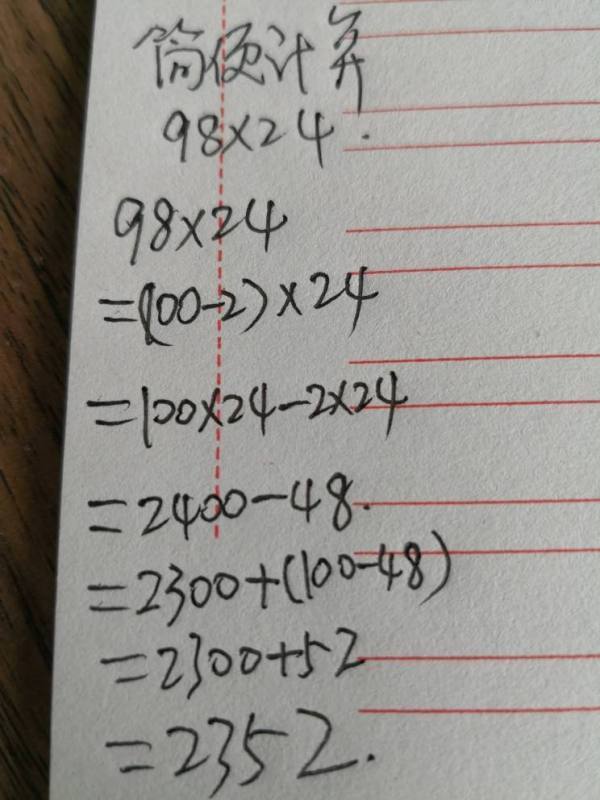 简便计算
98×24.
98×24
=(100-2)×24
=100×24-2×24
=2400-48.
=2300+(100-48)
=2300+52
=2352.